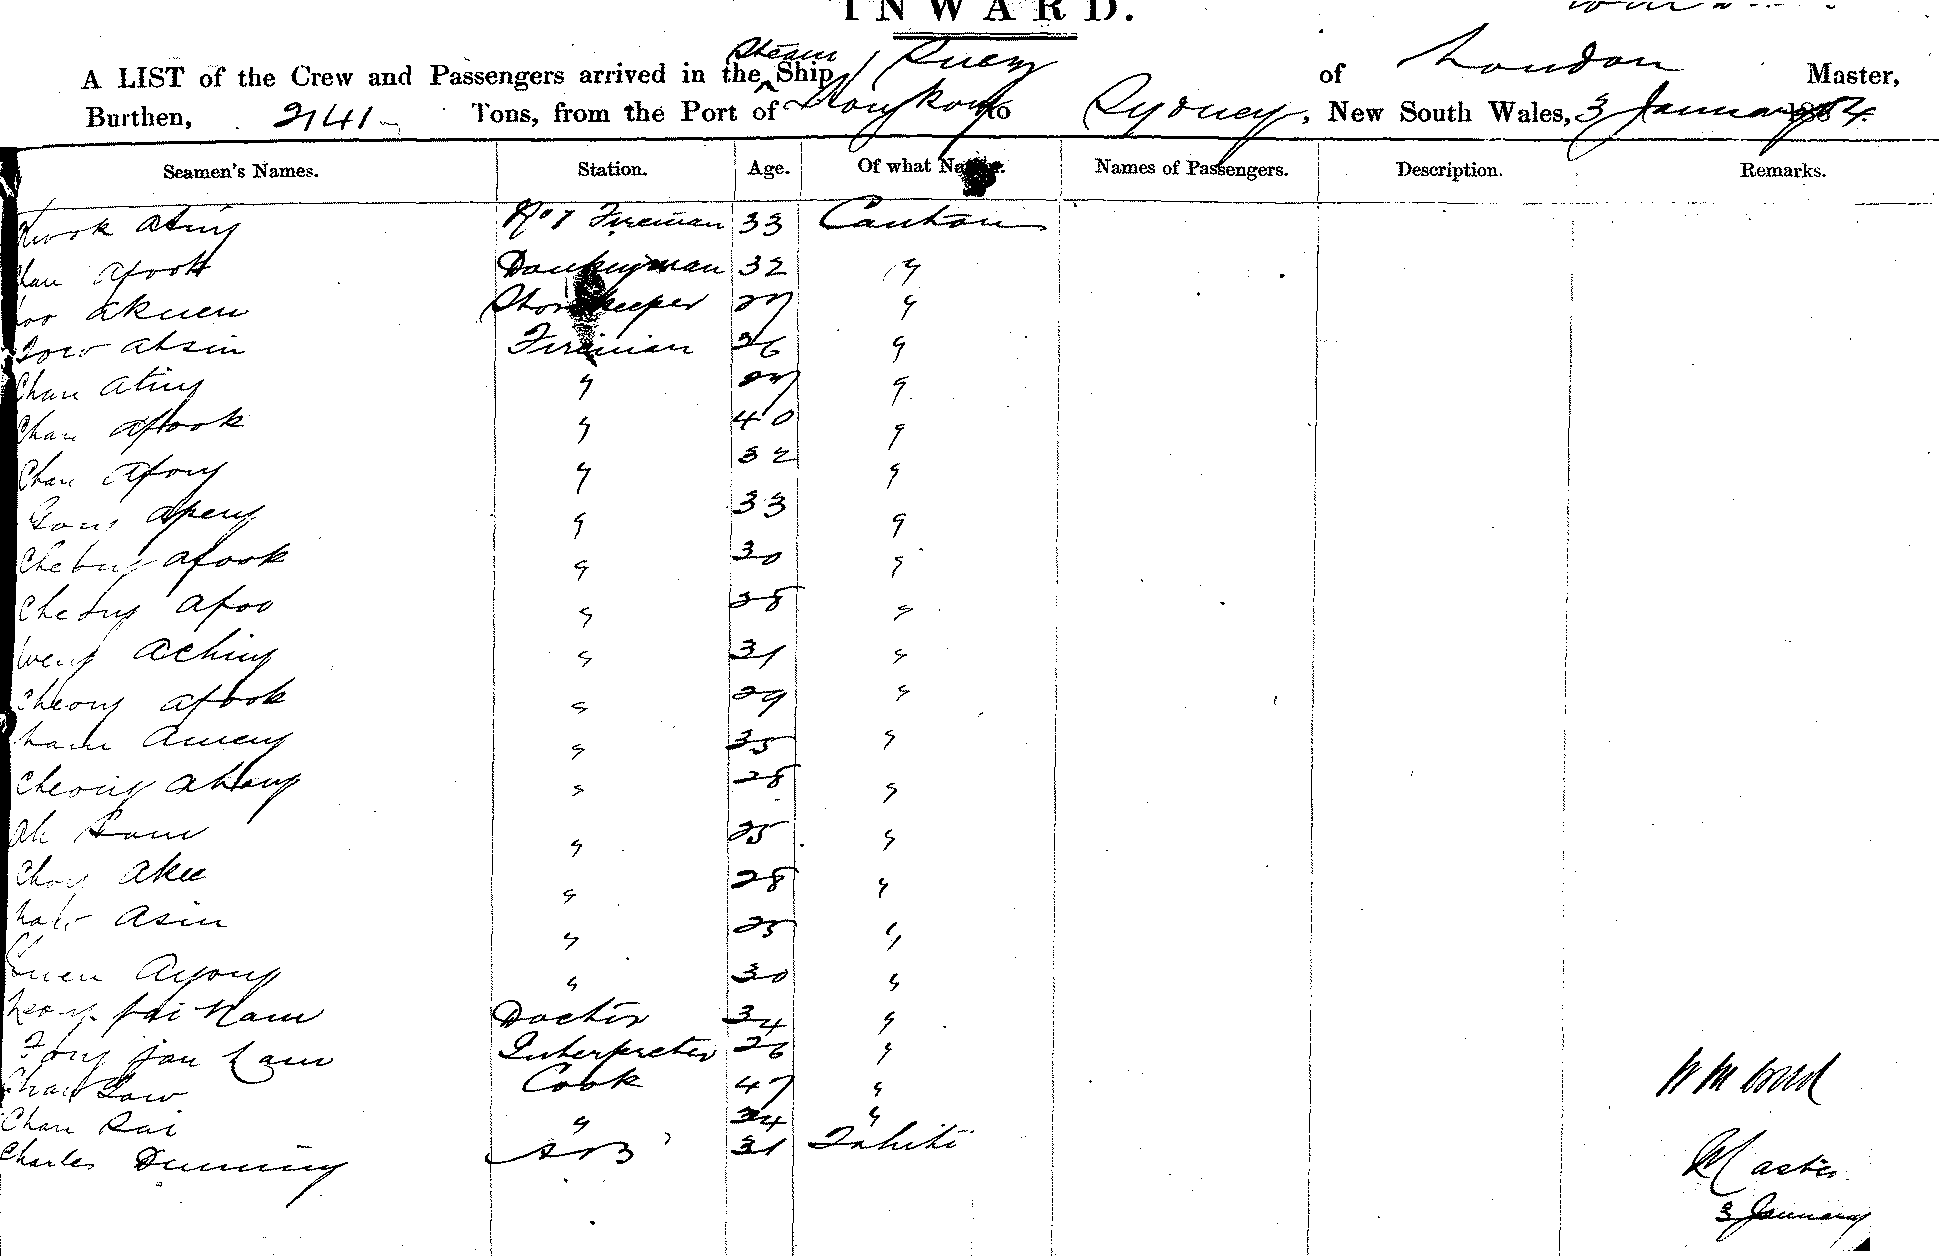 INWARD.
A LIST of the Crew and Passengers arrived in the Steam Ship Suez of London Master,
Burthen, 2141 Tons, from the Port of Hongkong to Sydney, New South Wales, 3 January 1884
Seamen's Names. Station. Age. Of what Nation. Names of Passengers. Description. Remarks.
Kwok Ating No 1 Fireman 33 Canton
Chan Afook Donkeyman 32 "
Akuen Storekeeper 27 "
Atsin Fireman 26 "
Chan Ating " 27 "
Chan Afook " 40 "
Chan Afong " 32 "
Apeng " 33 "
Cheong Afook " 30 "
Cheong Afoo " 28 "
Aching " 31 "
Cheong Afook " 29 "
Ameng " 35 "
Cheong Ahong " 28 "
Ah Sam " 25 "
Choy Akee " 28 "
Asin " 25 "
Ayong " 30 "
Nam Doctor 34 "
Fong Interpreter 26 "
Chan Sow Cook 47 "
Chan Sai " 34 "
Charles Dunning AB 31 Tahiti
Master
3 January